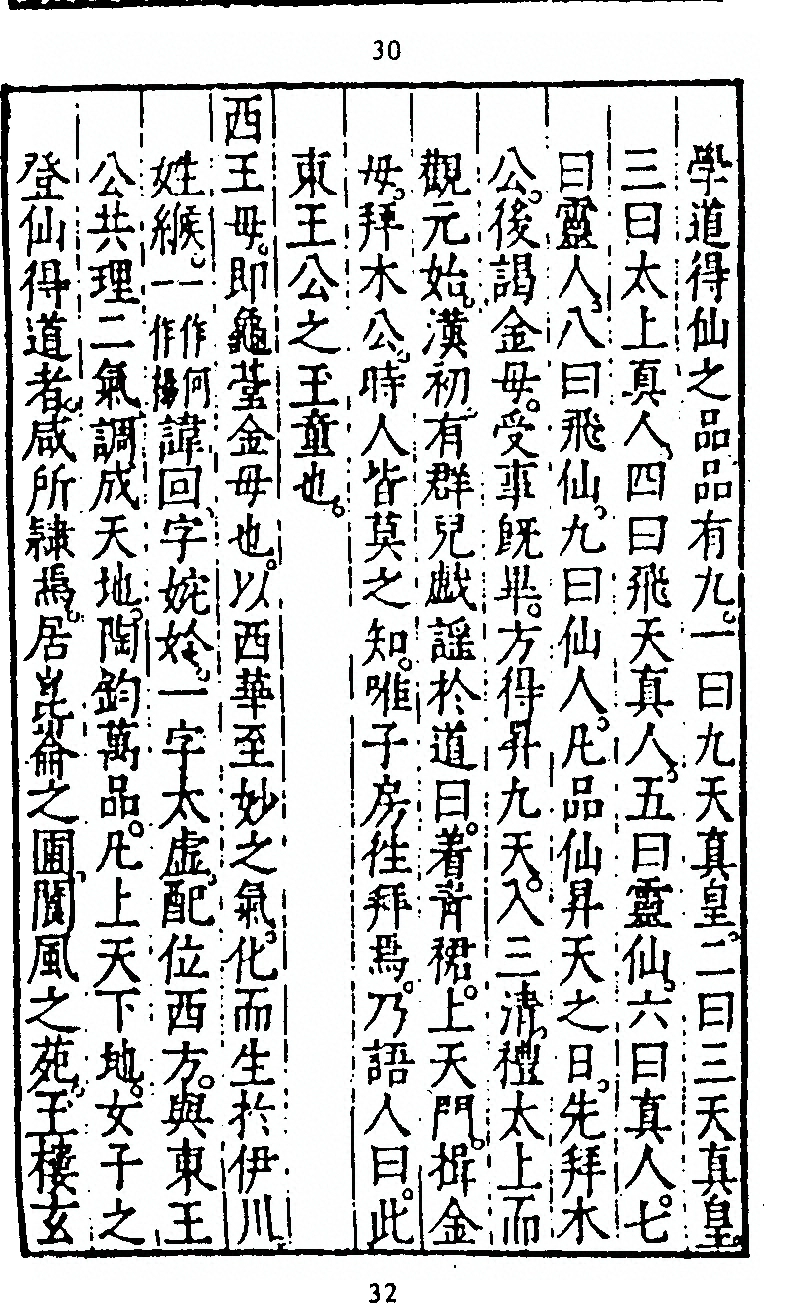 30
學道得仙之品品有九。一曰九天真皇。二曰三天真皇。
三曰太上真人、四曰飛天真人、五曰靈仙、六曰真人。七
曰靈人、八曰飛仙、九曰仙人。凡品仙昇天之日、先拜木
公。後謁金母。受事既畢。方得昇九天。入三清、禮太上而
觀元始。漢初有群兒戲謠於道曰。着青裙。上天門。揖金
母。拜木公。時人皆莫之知。唯子房往拜焉。乃語人曰。此
東王公之王童也。
西王母。即龜臺金母也。以西華至妙之氣。化而生於伊川
姓緱。一作何一作楊諱回、字婉妗。一字太虛、配位西方。與東王
公共理二氣調成天地、陶鈞萬品。凡上天下地。女子之
登仙得道者。咸所隸焉。居崑崙之圃、閬風之苑。王樓玄
32